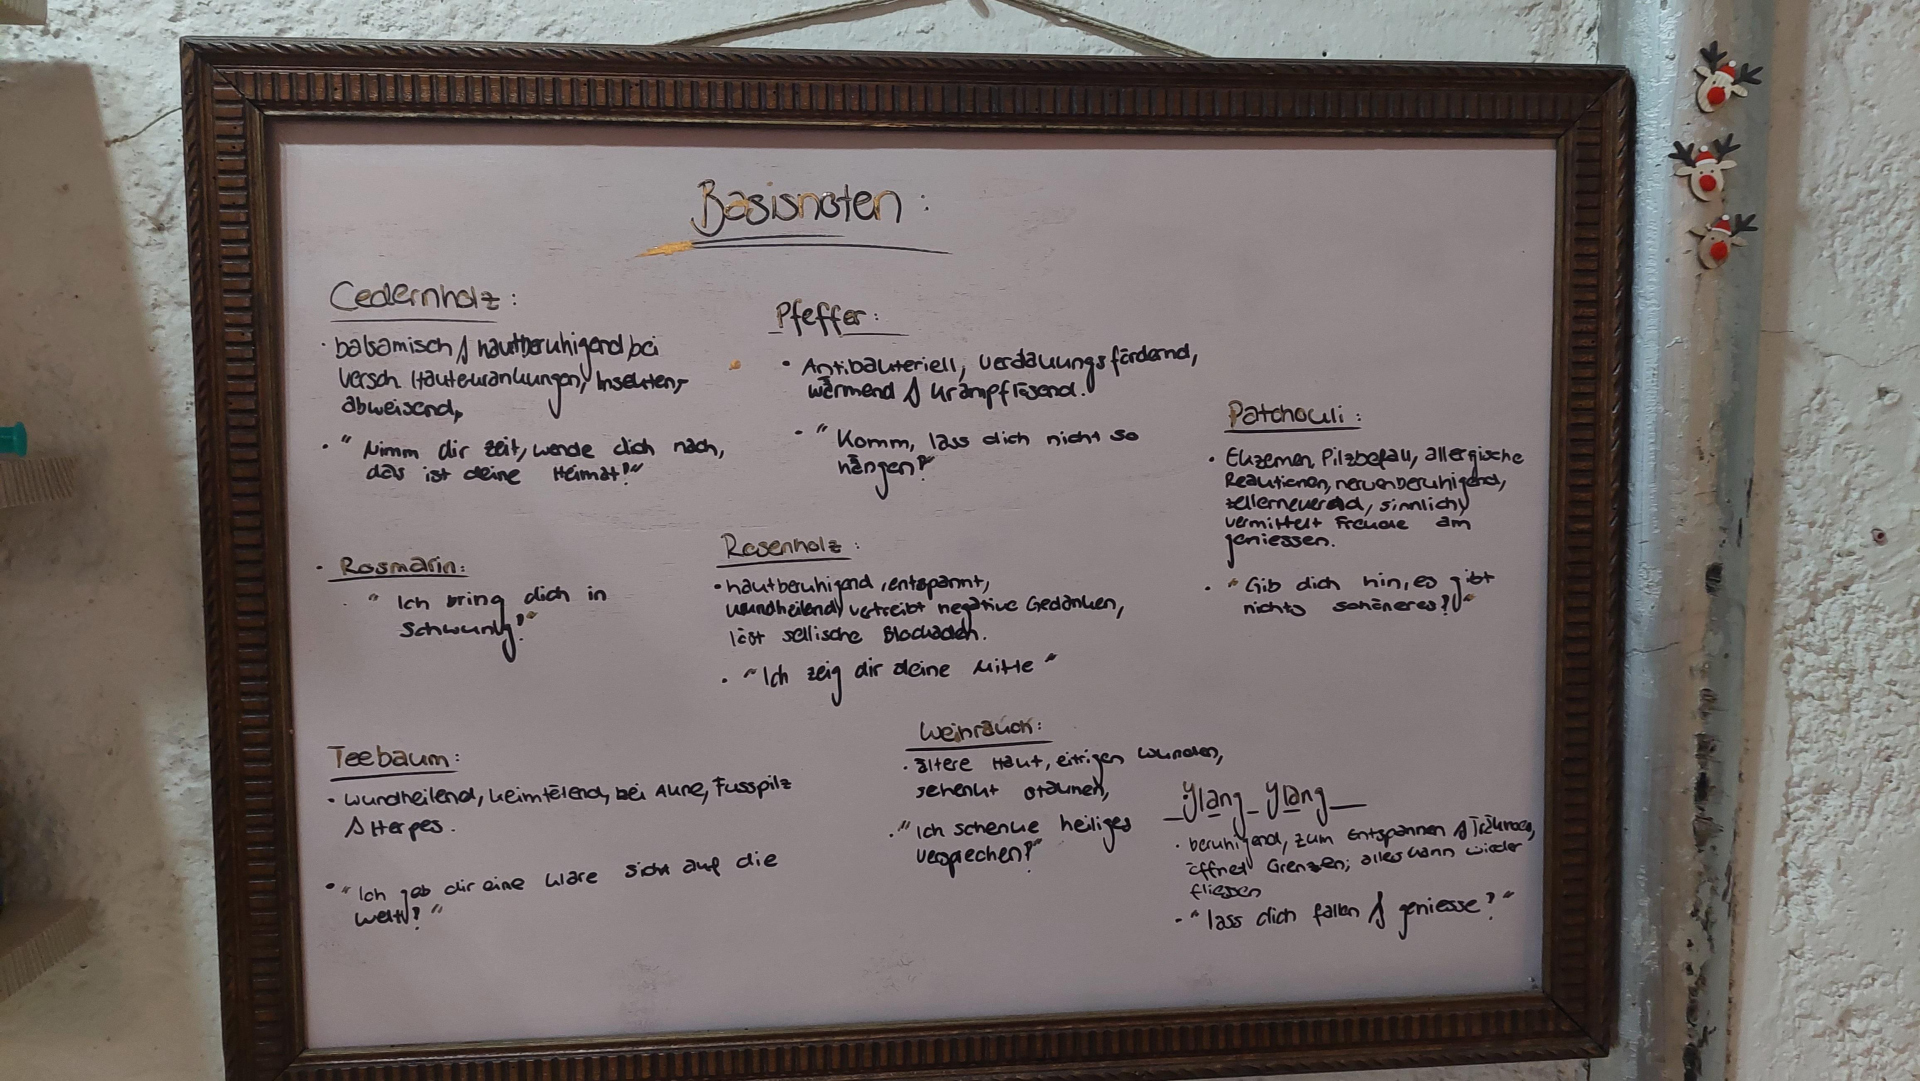 Basisnoten:
Cedernholz:
· balsamisch & hautberuhigend bei
versch. Hauterkrankungen, Insekten,
abweisend,
· "Nimm dir zeit, wende dich nach,
das ist deine Heimat!"
Pfeffer:
· Antibakteriell, verdauungsfördernd,
wärmend & krampflösend.
· "Komm, lass dich nicht so
hängen!"
Patchouli:
· Ekzemen, Pilzbefall, allergische
Reaktionen, nervenberuhigend,
zellerneuernd, sinnlich,
vermittelt Freude am
geniessen.
· "Gib dich hin, es gibt
nichts schöneres!"
· Rosmarin:
"Ich bring dich in
Schwung!"
Rosenholz:
· hautberuhigend, entspannt,
wundheilend, vertreibt negative Gedanken,
löst sellische Blockaden.
· "Ich zeig dir deine Mitte"
Teebaum:
· wundheilend, keimtötend, bei Akne, Fusspilz
& Herpes.
· "Ich geb dir eine klare sicht auf die
welt!"
Weihrauch:
· ältere Haut, eitrigen wunden,
schenkt
· "Ich schenke heiliges
versprechen!"
Ylang Ylang
· beruhigend, zum Entspannen & Träumen,
öffnet Grenzen; alles kann wieder
fliessen
· "lass dich fallen & geniesse!"